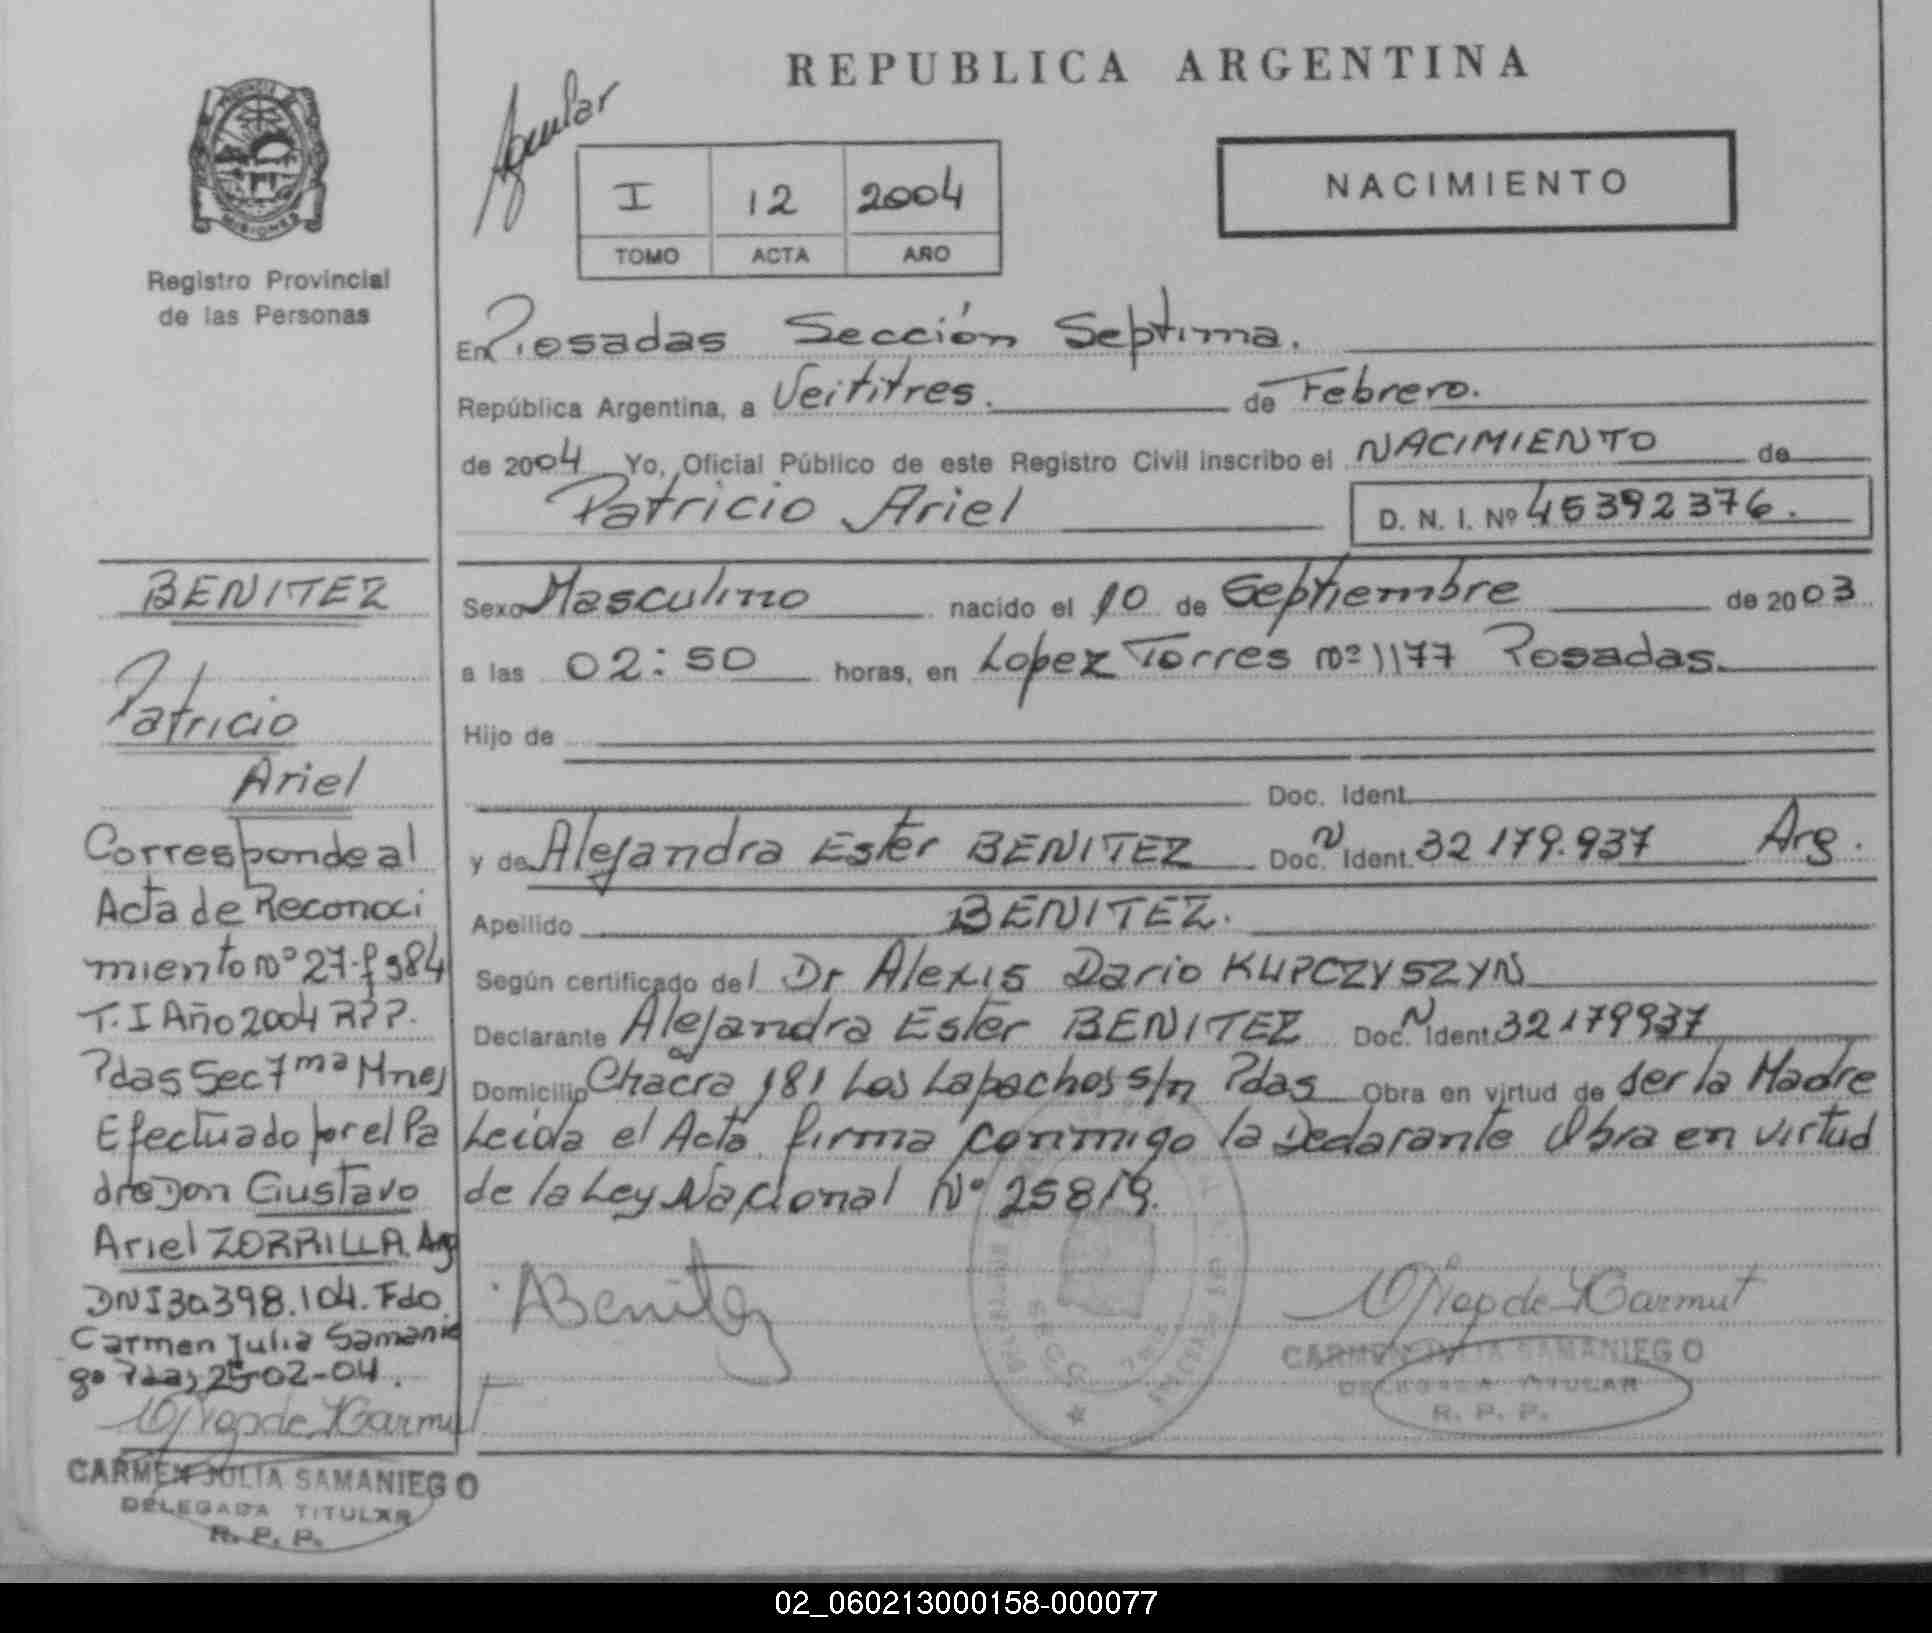 REPUBLICA ARGENTINA
PROVINCIA DE
MISIONES
Registro Provincial
de las Personas
Aguilar
I 12 2004
TOMO ACTA AÑO
NACIMIENTO
En Posadas Sección Septima.
República Argentina, a Veititres. de Febrero.
de 2004 Yo, Oficial Público de este Registro Civil inscribo el NACIMIENTO de
Patricio Ariel D. N. I. Nº 45392376.
Sexo Masculino nacido el 10 de Septiembre de 2003
a las 02:50 horas, en Lopez Torres nº 1177 Posadas.
Hijo de
Doc. Ident.
y de Alejandra Ester BENITEZ Doc. N Ident. 32179.937 Arg.
Apellido BENITEZ.
Según certificado del Dr Alexis Dario KUPCZYSZYN
Declarante Alejandra Ester BENITEZ Doc. N Ident. 32179937
Domicilio Chacra 181 Los Lapachos s/n Pdas Obra en virtud de ser la Madre
Leida el Acta firma conmigo la Declarante Obra en virtud
de la Ley Nacional Nº 25819.
ABenitez
CARMEN JULIA SAMANIEGO
DELEGADA TITULAR
R. P. P.
BENITEZ
Patricio
Ariel
Corresponde al
Acta de Reconoci
miento nº 27-f 984
T. I Año 2004 RPP.
Pdas Sec 7ma Mnes
Efectuado por el Pa
dre Don Gustavo
Ariel ZORRILLA Arg
DNI 30.398.104. Fdo
Carmen Julia Samanie
go Pdas 25-02-04.
CARMEN JULIA SAMANIEGO
DELEGADA TITULAR
R. P. P.
02_060213000158-000077